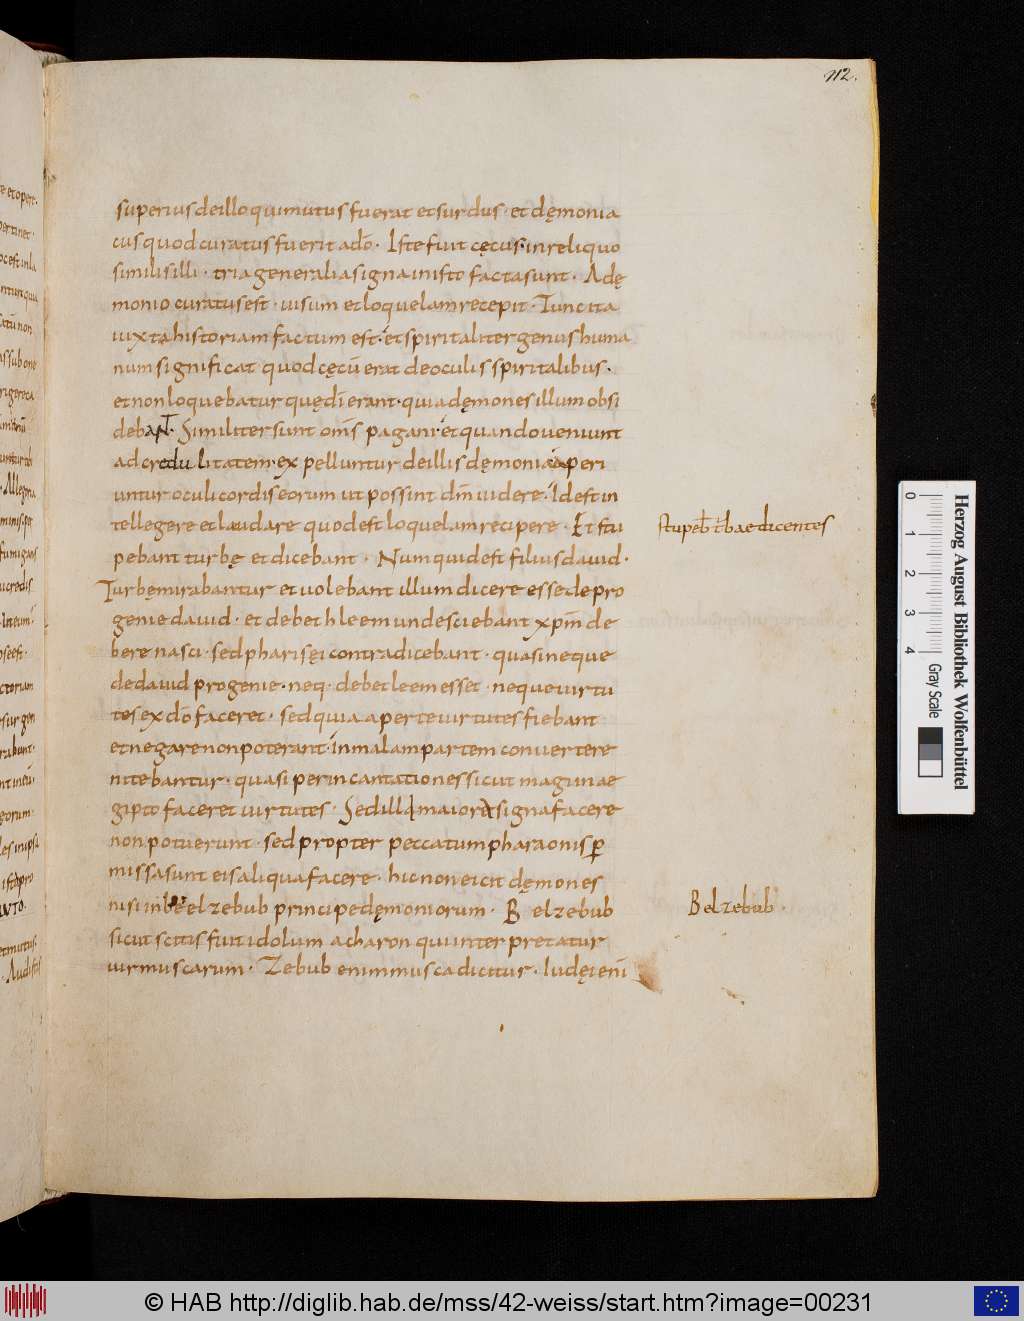 112.
superius de illo qui mutus fuerat et surdus · et demonia
cus quod curatus fuerit a dō · Iste fuit cęcus · in reliquo
similis illi · tria generalia signa in isto facta sunt · A dę
monio curatus est · uisum et loquelam recepit · Tunc ita
iuxta historiam factum est · et spiritaliter genus huma
num significat quod cęcū erat de oculis spiritalibus ·
et non loquebatur quę dī erant · quia dęmones illum obsi
debant · Similiter sunt om̄s pagani · et quando ueniunt
ad credulitatem · expelluntur de illis dęmonia aperi
untur oculi cordis eorum ut possint dm̄ uidere · Id est in
tellegere et laudare quod est loquelam recipere · Et stu
stupeb̄ t̄bae dicentes
pebant turbę et dicebant · Numquid est filius dauid ·
Turbę mirabantur et uolebant illum dicere esse de pro
genie dauid · et de bethleem unde sciebant xpm̄ de
bere nasci · sed pharisęi contradicebant · quasi neque
de dauid progenie · neq· de betleem esset · neque uirtu
tes ex dō faceret · sed quia aperte uirtutes fiebant
et negare non poterant · in malam partem conuertere
nitebantur · quasi per incantationes sicut magi in ae
gipto faceret uirtutes · Sed illi maiora signa facere
non potuerunt · sed propter peccatum pharaonis ꝑ
missa sunt eis aliqua facere · hic non eicit dęmones
nisi in beelzebub principe dęmoniorum · B elzebub
Belzebub ·
sicut scitis fuit idolum acharon qui interpretatur
uir muscarum · Zebub enim musca dicitur · Iudęi enī
0 1 2 3 4
Herzog August Bibliothek Wolfenbüttel
Gray Scale
© HAB http://diglib.hab.de/mss/42-weiss/start.htm?image=00231